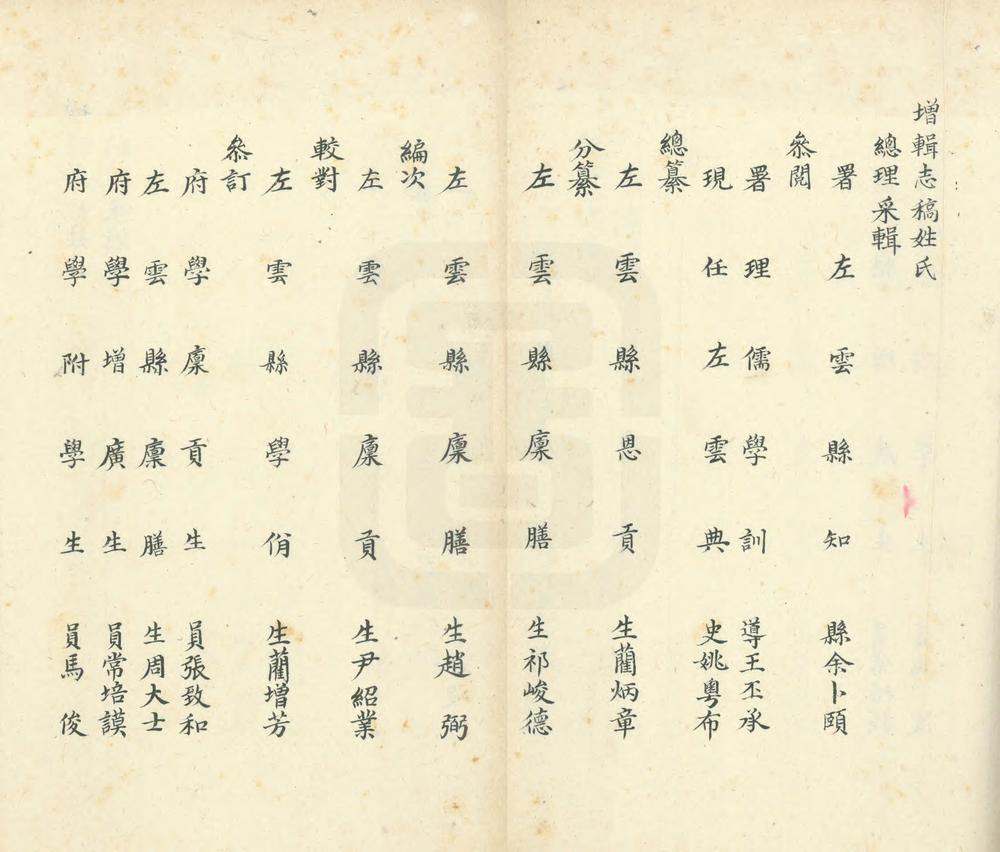 增輯志稿姓氏
總理采輯
署左雲縣知縣余卜頤
叅閱
署理儒學訓導王丕承
現任左雲典史姚粵布
總纂
左雲縣恩貢生藺炳章
分纂
左雲縣廩膳生祁峻德
編次
左雲縣廩膳生趙弼
左雲縣廩貢生尹紹業
較對
左雲縣學佾生藺增芳
叅訂
府學廩貢生員張致和
左雲縣廩膳生周大士
府學增廣生員常培謨
府學附學生員馬俊